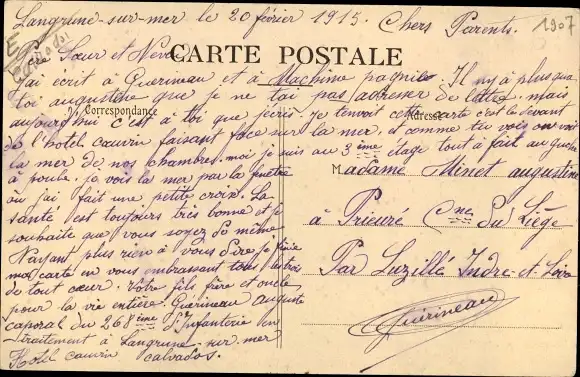 Langrune-sur-mer le 20 février 1915. Chers Parents.
1907
Sœur et Neveu
CARTE POSTALE
J'ai écrit à Guérineau et à Machine pagnie. Il n'y a plus que
toi augustine que je ne t'ai pas adresser de lettre. mais
Correspondance
Adresse
aujourd'hui c'est à toi que j'écris. Je t'envoit cette carte c'est le devant
de l'hotel cauvin faisant face sur la mer. et comme tu vois on voit
la mer de nos chambres. moi je suis au 3ème étage tout à fait au
à poule. je vois la mer par la fenêtre
ou j'ai fait une petite croix. La
santé est toujours très bonne et je
souhaite que vous soyez de même
N'ayant plus rien à vous dire je finie
ma carte en vous embrassant tous les trois
de tout cœur. Votre fils frère et oncle
pour la vie entière. Guérineau auguste
caporal du 268ème d'Infanterie en
traitement à Langrune-sur-mer
Hotel cauvin calvados.
Madame Minet augustine
à Prieuré Cne du Liège
Par Luzillé Indre-et-Loire
Guérineau